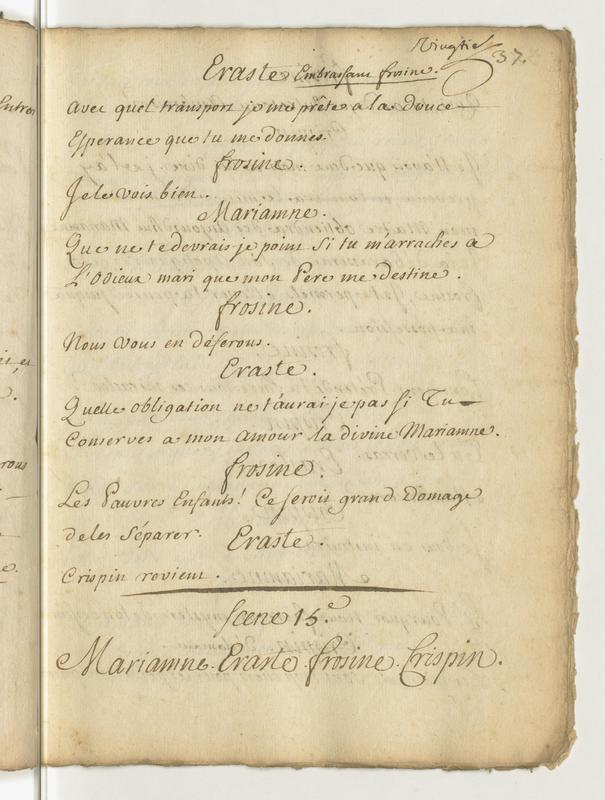 Vingtie 37.
Eraste Embrassant frosine.
avec quel transport je me prête a la douce
Esperance que tu me donnes.
frosine.
Je le vois bien.
Mariamne.
Que ne te devrais-je point si tu m'arraches a
L'odieux mari que mon Pere me destine.
frosine.
Nous vous en déferons.
Eraste.
Quelle obligation ne t'aurai je pas si Tu
Conserves a mon amour la divine Mariamne.
frosine.
Les Pauvres Enfants! Ce serois grand Domage
de les Séparer.
Eraste.
Crispin revient.
Scene 15.e
Mariamne. Eraste. frosine. Crispin.